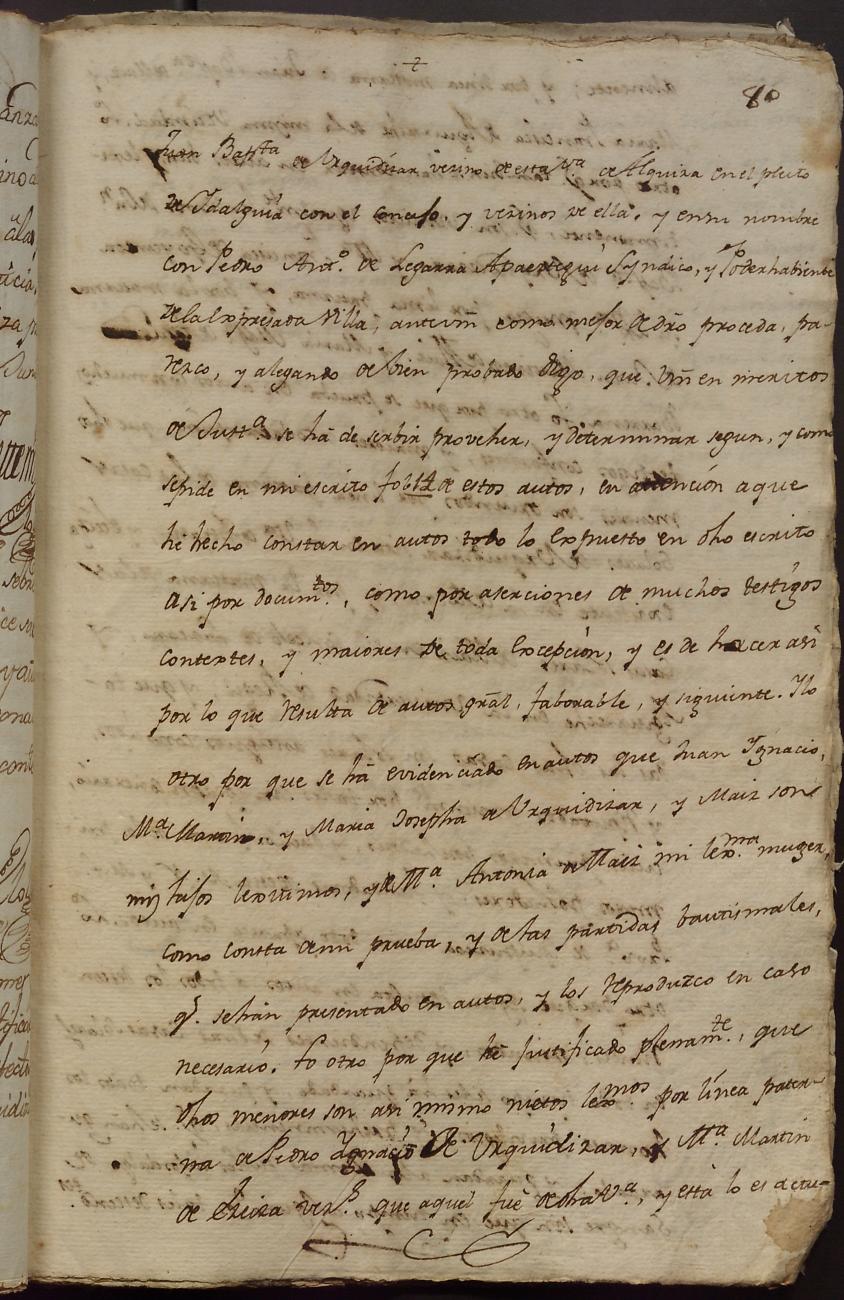 80
Juan Bap.ta de Urquidizar vezino de esta V.a de Alquiza en el pleito
de Ydalguia con el concejo, y vezinos de ella, y en su nombre
con Pedro Ant.o de Legarra Apaeztegui Syndico, y Poderhabiente
de la expresada villa, ante vm como mejor de dro proceda, pa-
rezco, y alegando de bien probado digo, que vm en meritos
de Just.a se há de serbir proveher, y determinar segun, y como
se pide en mi escrito fol 14 de estos autos, en atención a que
he hecho constar en autos todo lo expuesto en dho escrito
asi por docum.tos, como por aserciones de muchos testigos
contextes, y maiores de toda excepción, y es de hacer asi
por lo que resulta de autos gral, faborable, y siguiente. Y lo
otro por que se há evidenciado en autos que Juan Ygnacio,
M.a Martin, y Maria Josepha de Urquidizar, y Maiz son
mis hijos lexitimos, y de M.a Antonia de Maiz mi lex.ma muger,
como consta de mi prueba, y de las partidas bautismales,
q.e se han presentado en autos, y los reproduzco en caso
necesario. Lo otro por que he justificado plenam.te, que
dhos menores son asi mismo nietos lex.mos por línea pater-
na de Pedro Ygnacio de Urquidizar, y M.a Martin
de vez.s que aquel fué de dha V.a, y esta lo es actu-